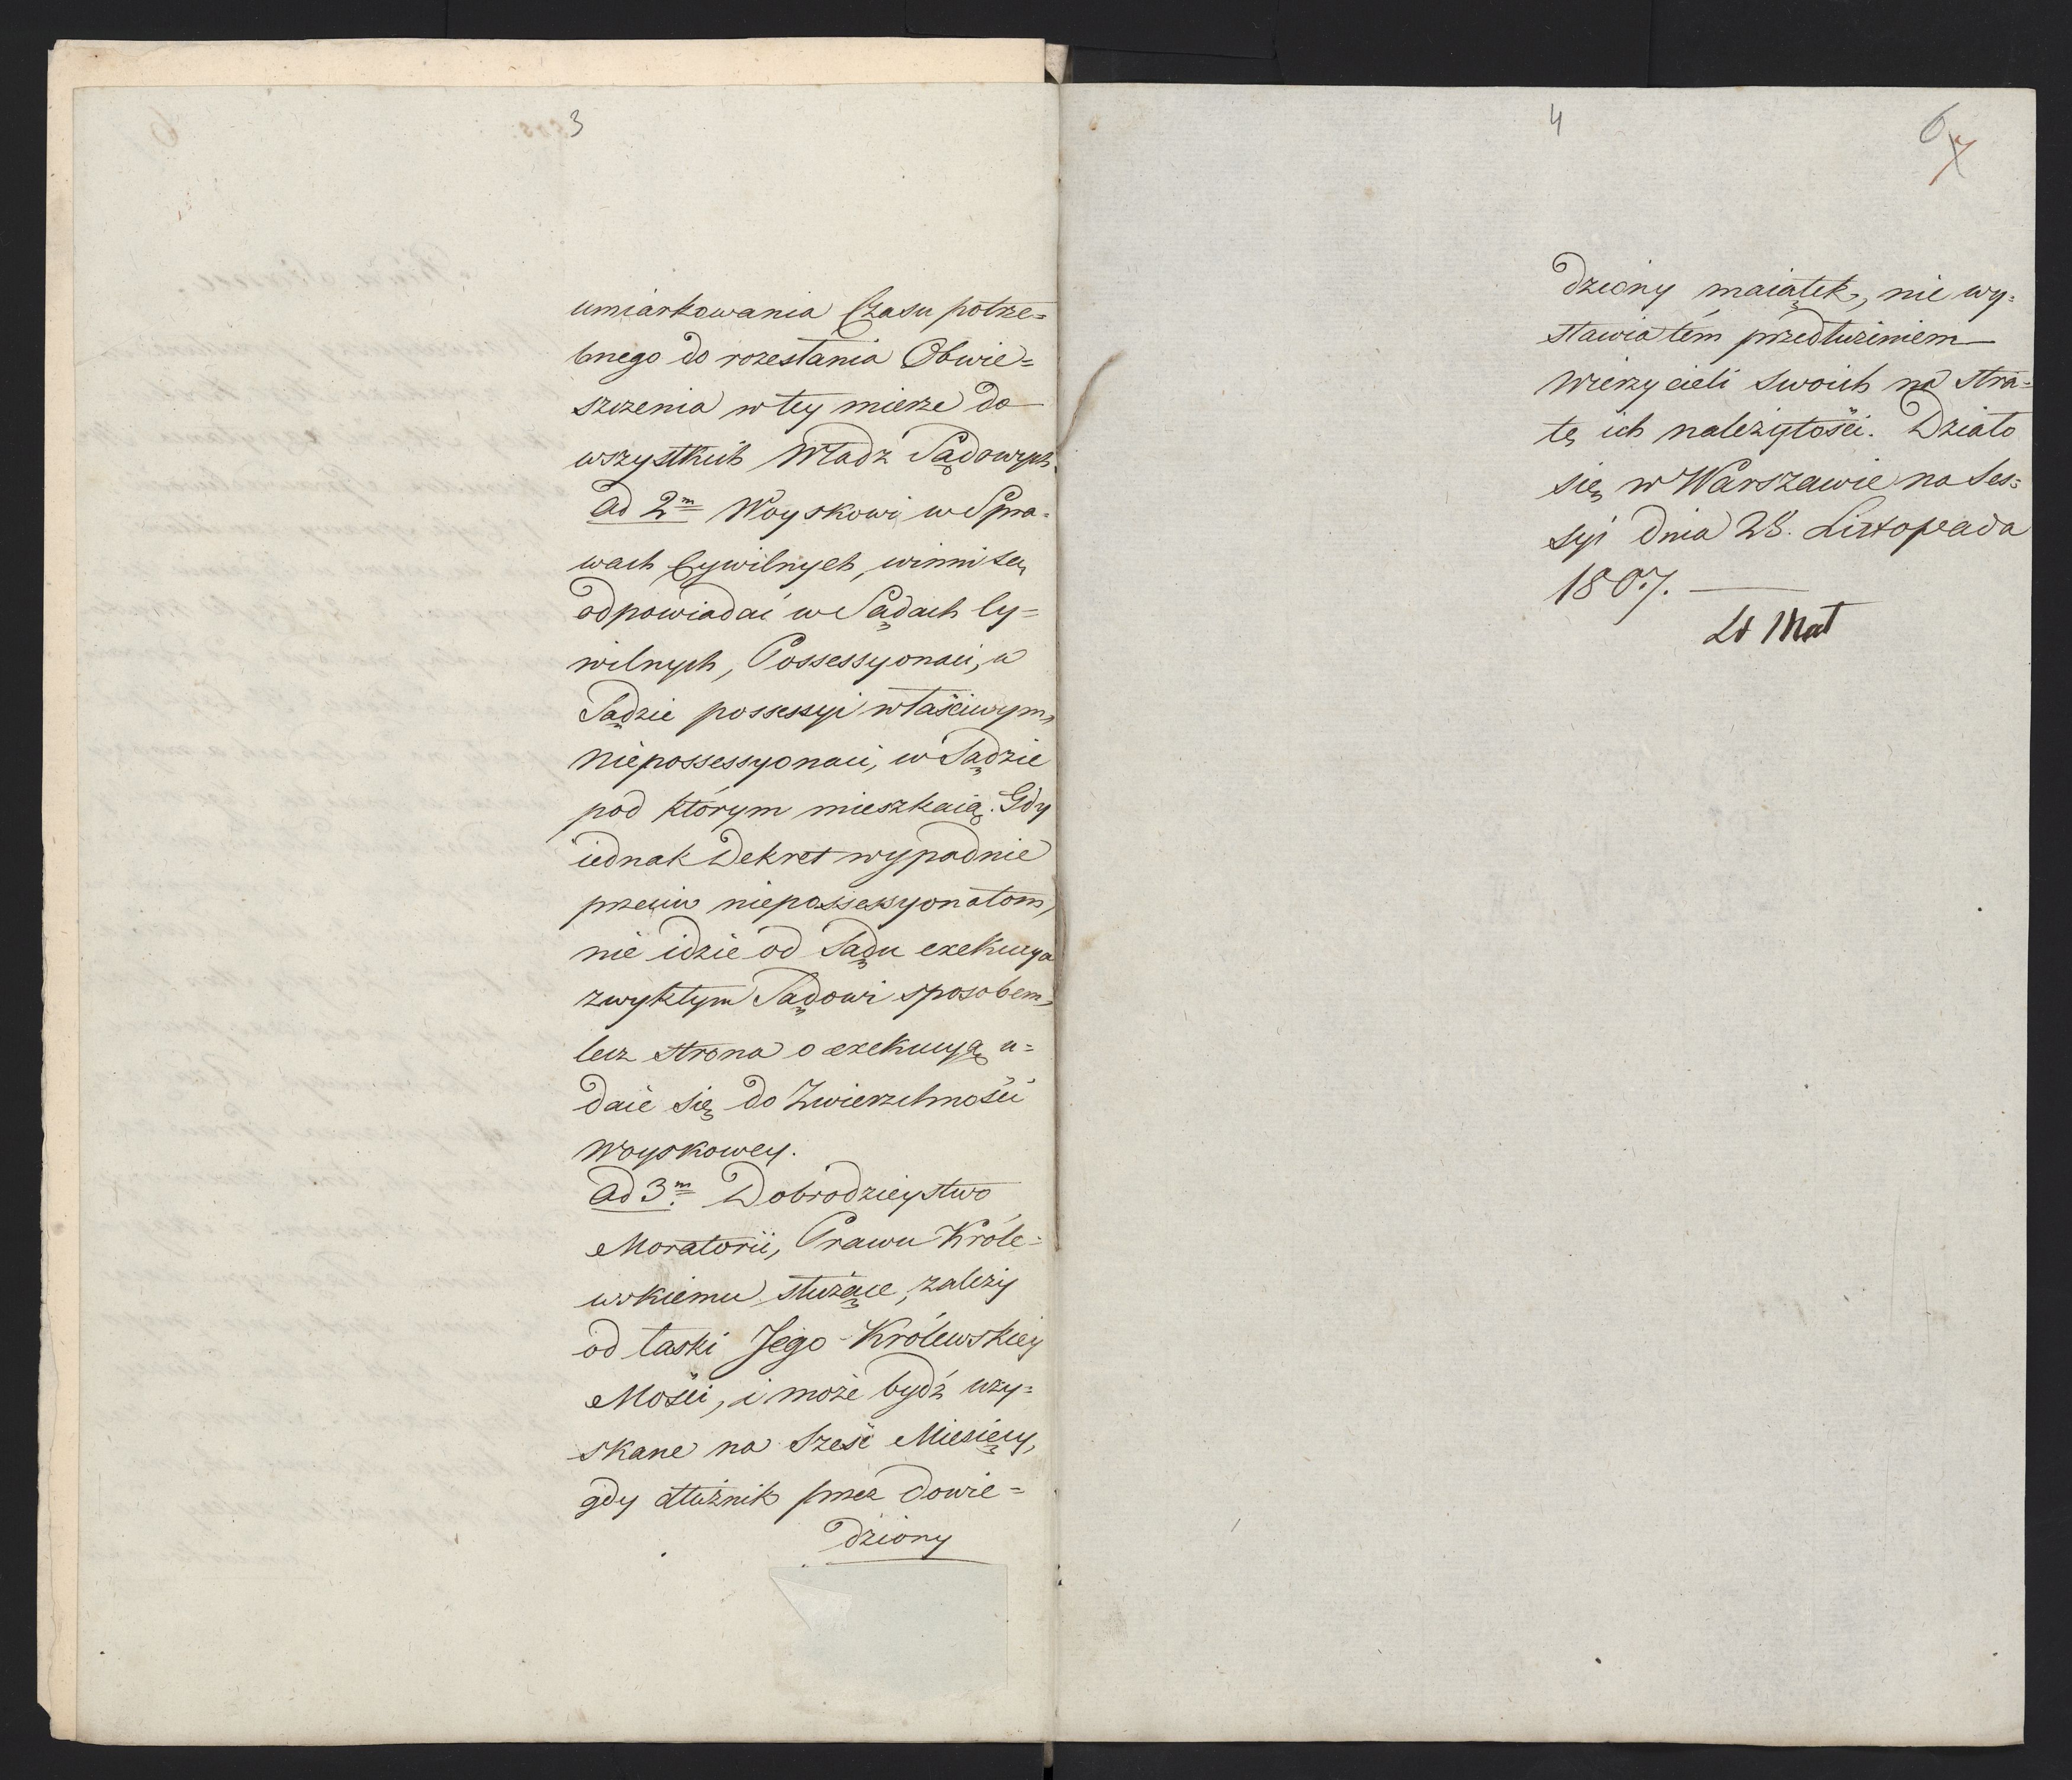 3
umiarkowania Czasu potrze=
bnego do rozesłania Obwie=
szczenia w tey mierze do
wszystkich Władz Sądowych.
Ad 2m Woyskowi w Spra=
wach Cywilnych, winni są
odpowiadać w Sądach Cy=
wilnych, Possessyonaci, w
Sądzie possessyi właściwym,
Niepossessyonaci, w Sądzie
pod którym mieszkaią. Gdy
iednak Dekret wypadnie
przeciw niepossessyonatom,
nie idzie od Sądu exekucya
zwykłym Sądowi sposobem,
lecz strona o exekucyą u=
daie się do Zwierzchności
Woyskowey.
Ad 3m. Dobrodzieystwo
Moratorii, Prawu Króle=
wskiemu służące, zależy
od łaski Jego Królewskiey
Mości, i może bydź uzy=
skane na Sześć Miesięcy,
gdy dłużnik przez dowie=
dziony
4
6
7
dziony maiątek, nie wy=
stawia tém przedłużeniem
Wierzycieli swoich na stra=
tę ich należytości. Działo
się w Warszawie na Ses=
syi dnia 28. Listopada
1807.